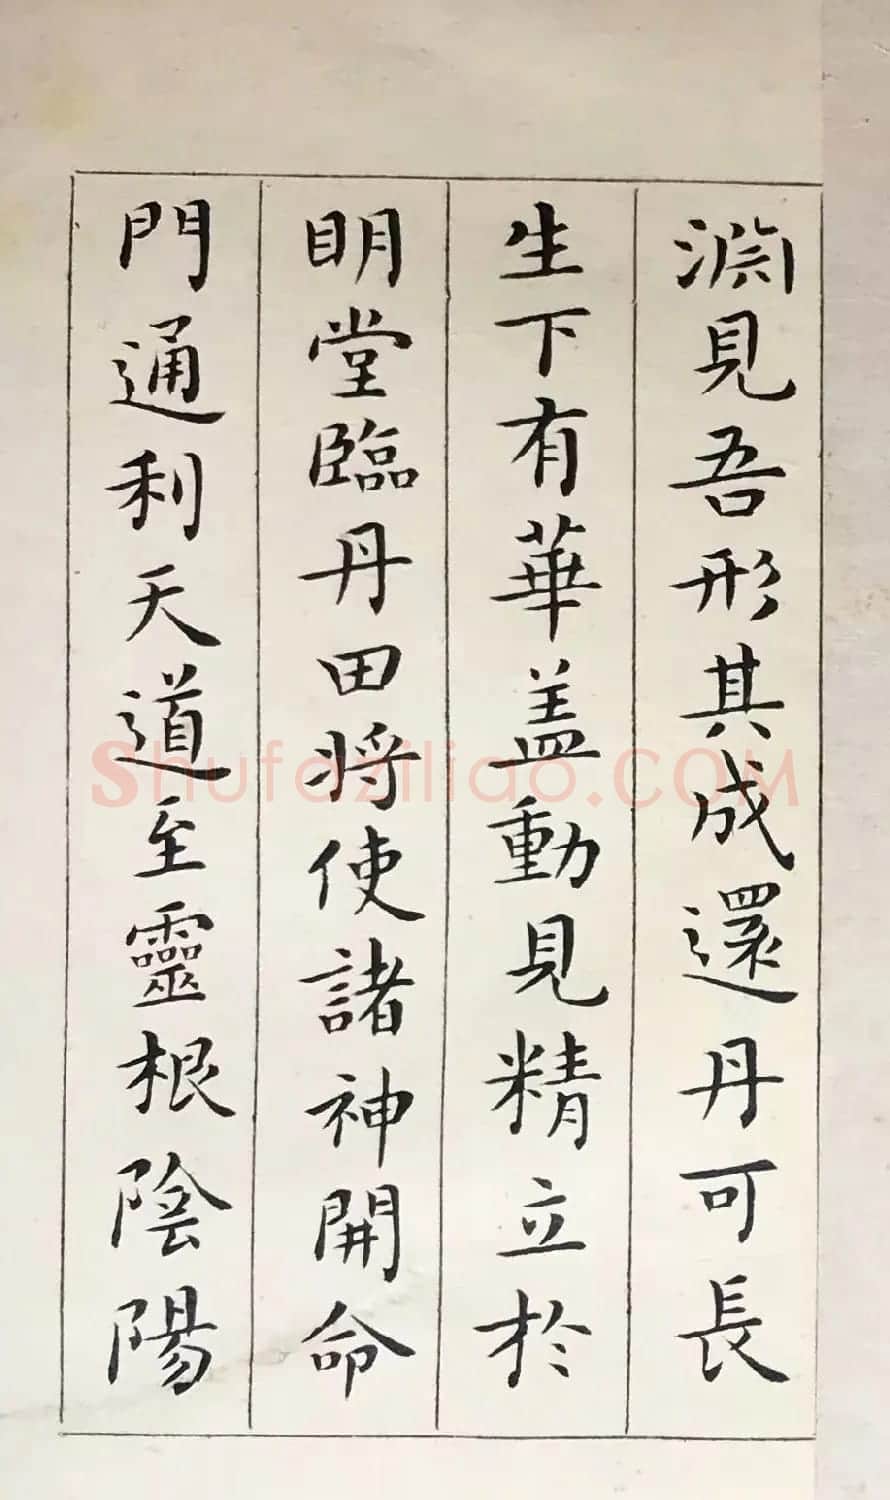 淵見吾形其成還丹可長
生下有華盖動見精立於
明堂臨丹田将使諸神開命
門通利天道至靈根陰陽
Shufaziliao.COM